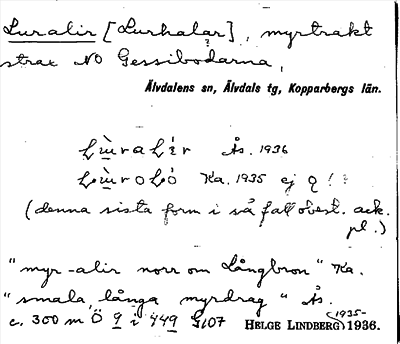 Luralir [Lurhalar], myrtrakt
strax NO Gessibodarna,
Älvdalens sn, Älvdals tg, Kopparbergs län.
Ås. 1936
Ka. 1935 ej
(denna sista form i så fall obest. ack.
pl.)
"myr-alir norr om Långbron" Ka.
"smala, långa myrdrag" Ås.
c. 300 m Ö 9 i 449 G107 HELGE LINDBERG 1935-
1936.